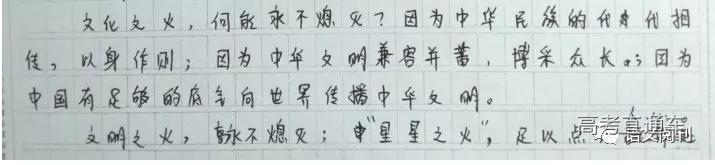 文化之火，何能永不熄灭？因为中华民族的代代相
传，以身作则；因为中华文明兼容并蓄，博采众长；因为
中国有足够的底气向世界传播中华文明。
文明之火，永不熄灭；“星星之火”，足以点
高考直通车
语文周刊